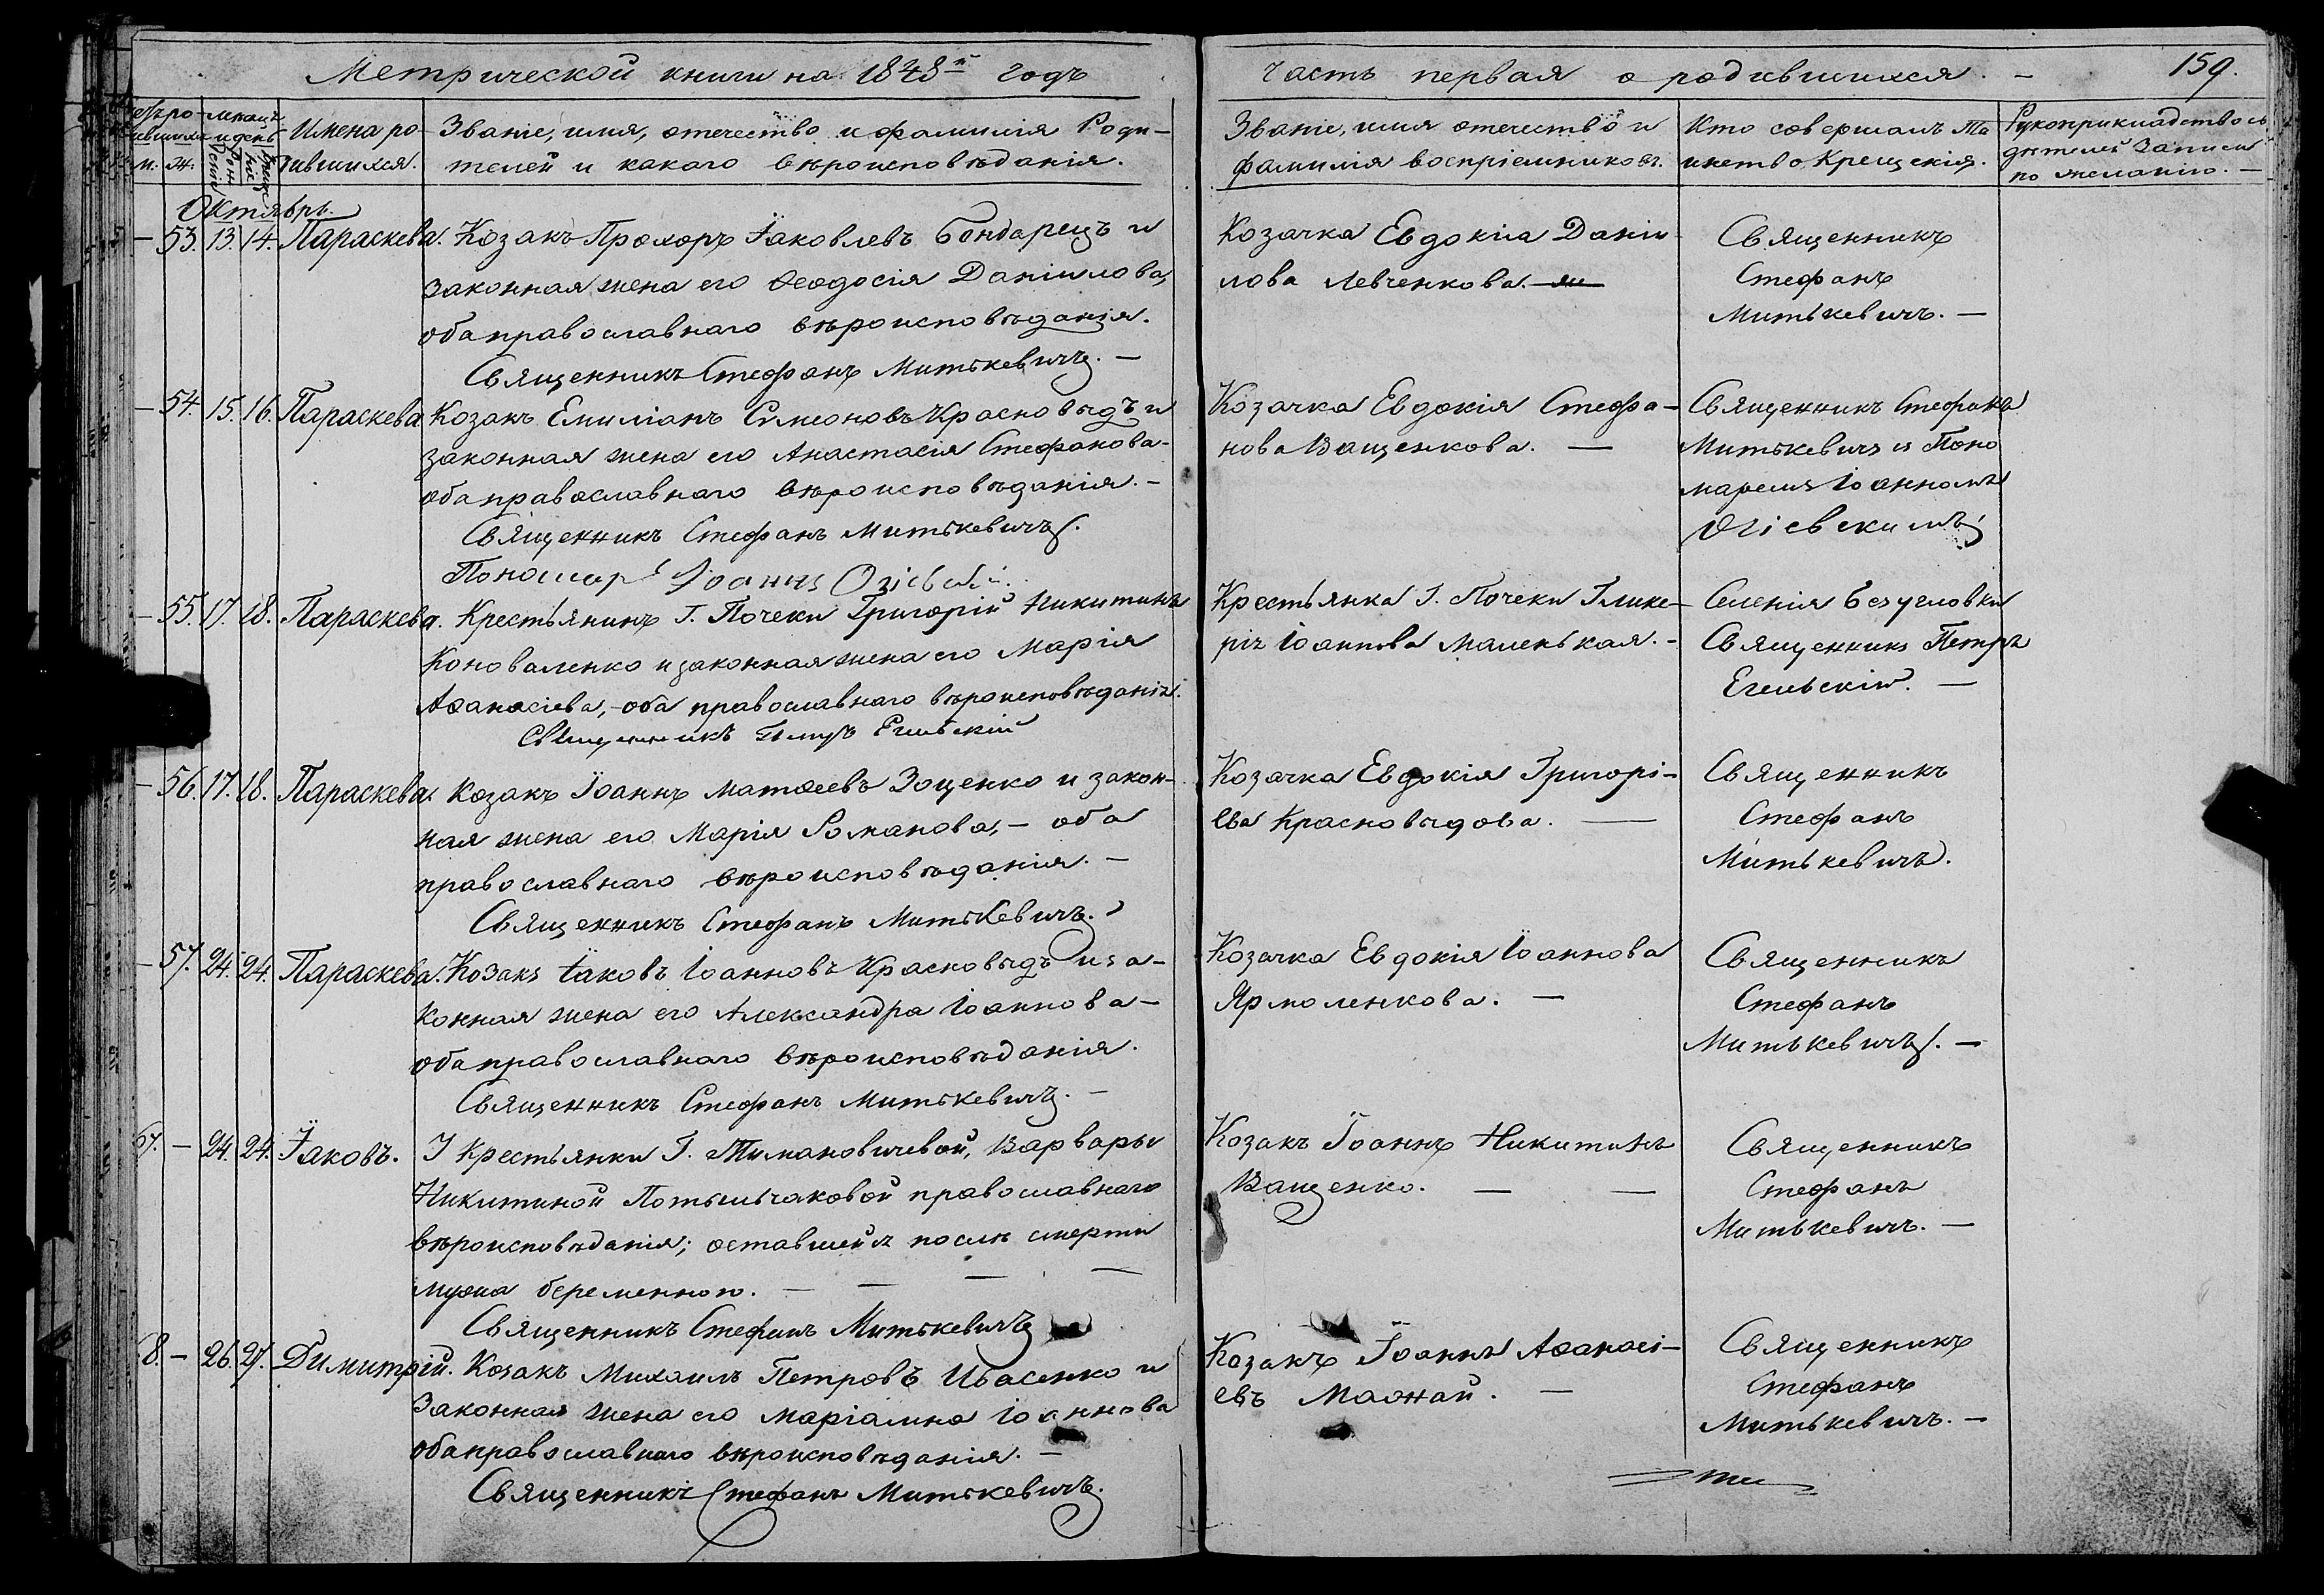 Метрической книги на 1848й годъ
часть первая о родившихся. — 159.
Имена ро-
дившихся.
Званіе, имя, отечество и фамилія Роди-
телей и какого вѣроисповѣданія.
Званіе, имя отечество и
фамилія воспріемниковъ.
Кто совершалъ Та
инство Крещенія.
Рукоприкладство сви
дѣтелей записи
по желанію. —
м. ж.
Октябрь.
— 53. 13. 14. Параскева. Козакъ Прохоръ Іаковлевъ Бондарецъ и
законная жена его Ѳеодосія Даніилова,
оба православнаго вѣроисповѣданія.
Священникъ Стефанъ Митькевичъ. —
Козачка Евдокіа Даніи
лова Левченкова. —
Священникъ
Стефанъ
Митькевичъ. —
— 54. 15. 16. Параскева Козакъ Емиліанъ Симеоновъ Красновидъ и
законная жена его Анастасія Стефанова-
оба православнаго вѣроисповѣданія. —
Священникъ Стефанъ Митькевичъ.
Пономарь Іоаннъ Огіевскій.
Козачка Евдокія Стефа-
нова Ващенкова. —
Священникъ Стефанъ
Митькевичъ и Поно
маремъ Іоанномъ
Огіевскимъ
— 55. 17. 18. Параскева. Крестьянинъ Г. Почеки Григорій Никитинъ
Коноваленко и законная жена его Марія
Аѳанасіева, - оба православнаго вѣроисповѣданія.
Священникъ Петръ Егельскій
Крестьянка Г. Почеки Глике-
рія Іоаннова Маленькая. -
Селенія Безугловки
Священникъ Петръ
Егельскій. —
— 56. 17. 18. Параскева. Козакъ Іоаннъ Матѳеевъ Зоценко и закон-
ная жена его Марія Романова, - оба
православнаго вѣроисповѣданія. —
Священникъ Стефанъ Митькевичъ.
Козачка Евдокія Григорі-
ева Красновидова. —
Священникъ
Стефанъ
Митькевичъ.
— 57. 24. 24. Параскева. Козакъ Іаковъ Іоанновъ Красновидъ и за-
конная жена его Александра Іоаннова —
оба православнаго вѣроисповѣданія.
Священникъ Стефанъ Митькевичъ. —
Козачка Евдокія Іоаннова
Ярмоленкова. —
Священникъ
Стефанъ
Митькевичъ. —
67. — 24. 24. Іаковъ. У Крестьянки Г. Тимановичевой, Варвары
Никитиной Потыльчаковой православнаго
вѣроисповѣданія; оставшейся послѣ смерти
мужа беременною. — — — —
Священникъ Стефанъ Митькевичъ
Козакъ Іоаннъ Никитинъ
Ващенко. — —
Священникъ
Стефанъ
Митькевичъ. —
8. — 26. 27. Димитрій. Козакъ Михаилъ Петровъ Ивасенко и
Законная жена его Маріамна Іоаннова
оба православнаго вѣроисповѣданія. —
Священникъ Стефанъ Митькевичъ.
Козакъ Іоаннъ Аѳанасі-
евъ Мажай. —
Священникъ
Стефанъ
Митькевичъ. —